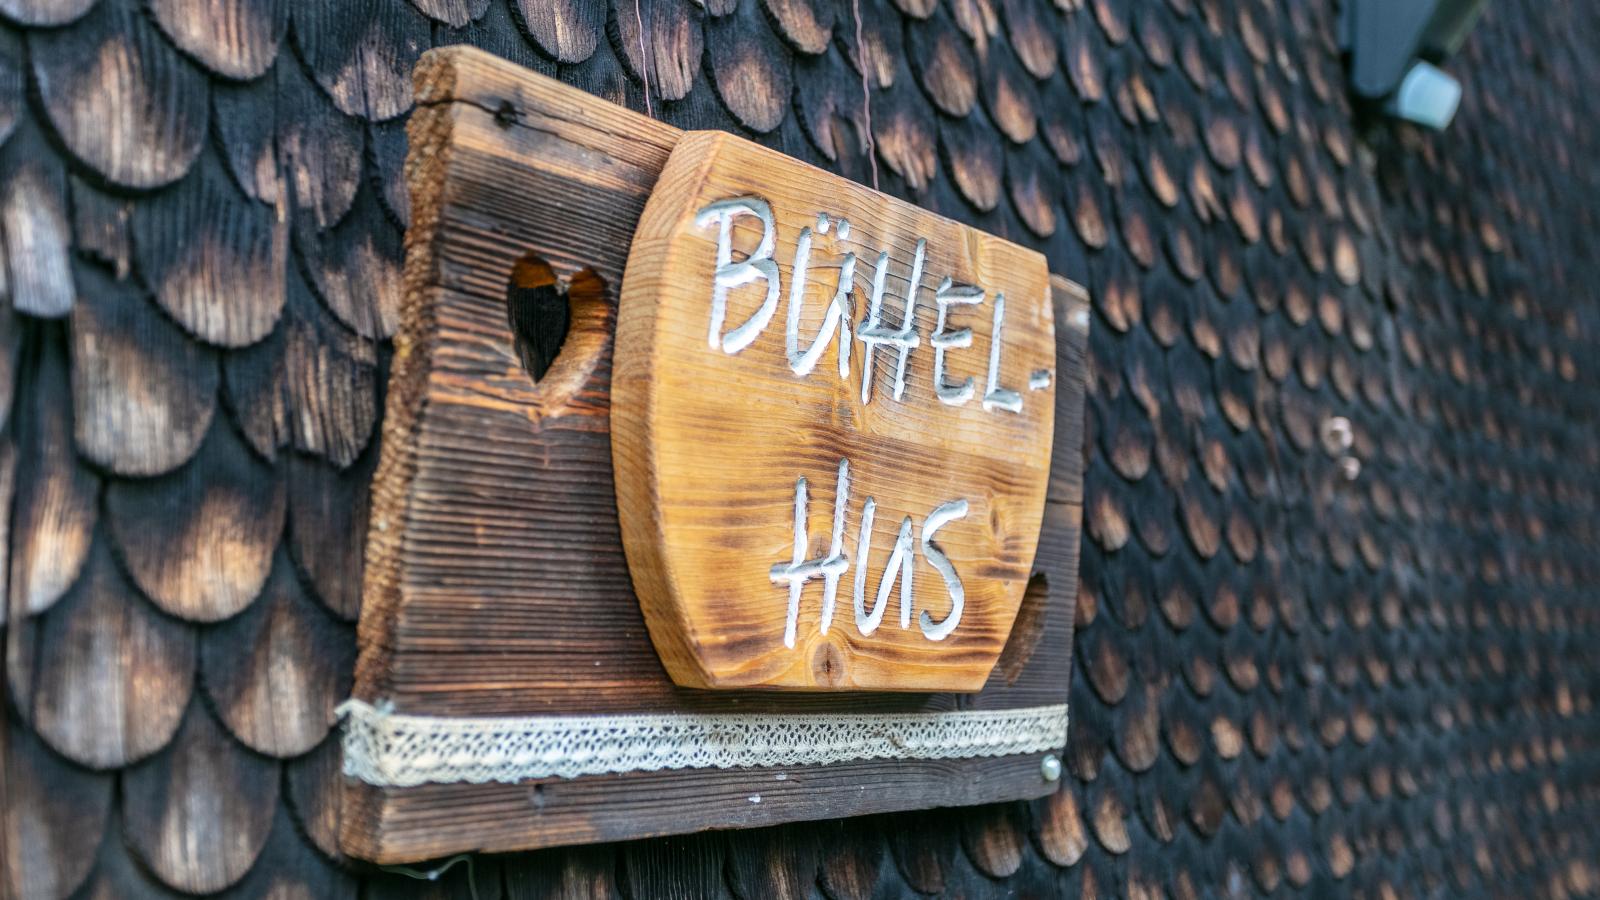 BÜHEL-
HUS